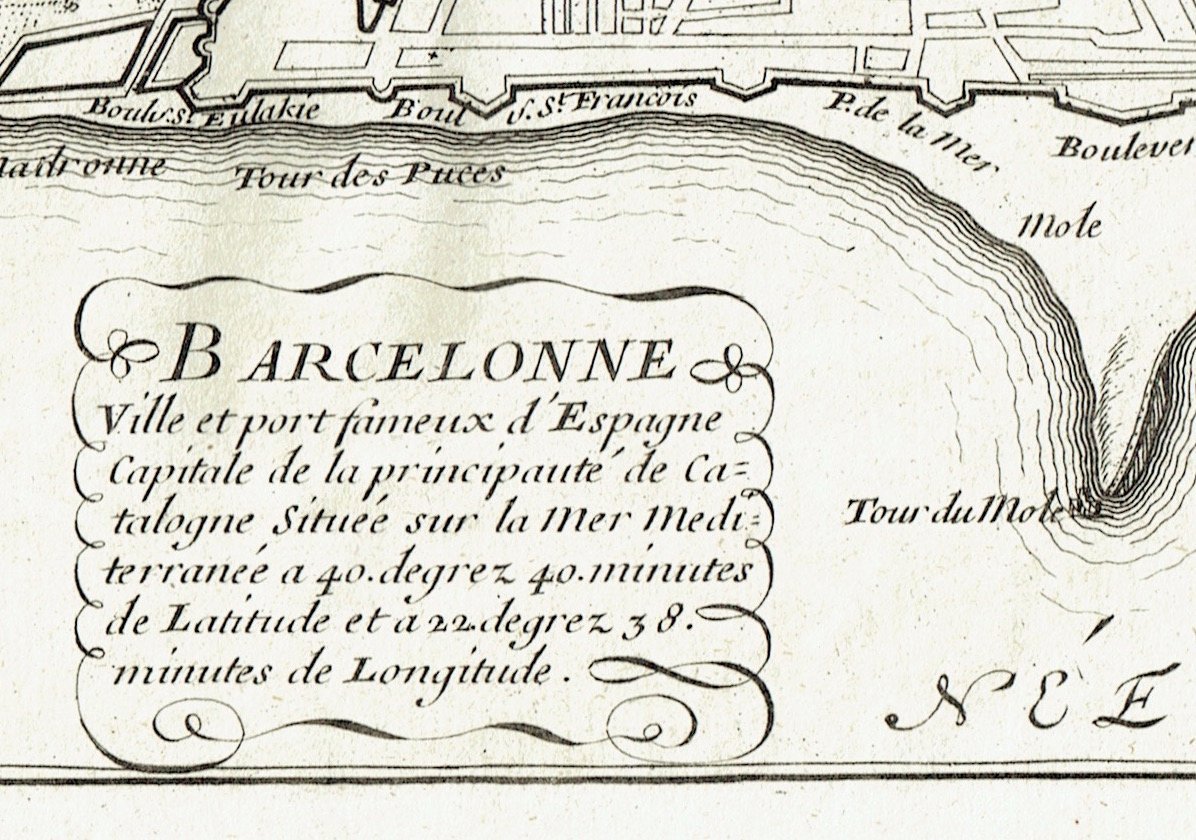 Boulv. St. Eulakie
Boul v. St. Francois
P. de la Mer
Boulever
Tour des Puces
Mole
BARCELONNE
Ville et port fameux d'Espagne
Capitale de la principauté de Ca=
talogne Situéé sur la Mer Medi=
terranéé a 40. degrez 40. minutes
de Latitude et a 22. degrez 38.
minutes de Longitude.
Tour du Mole
NÉE